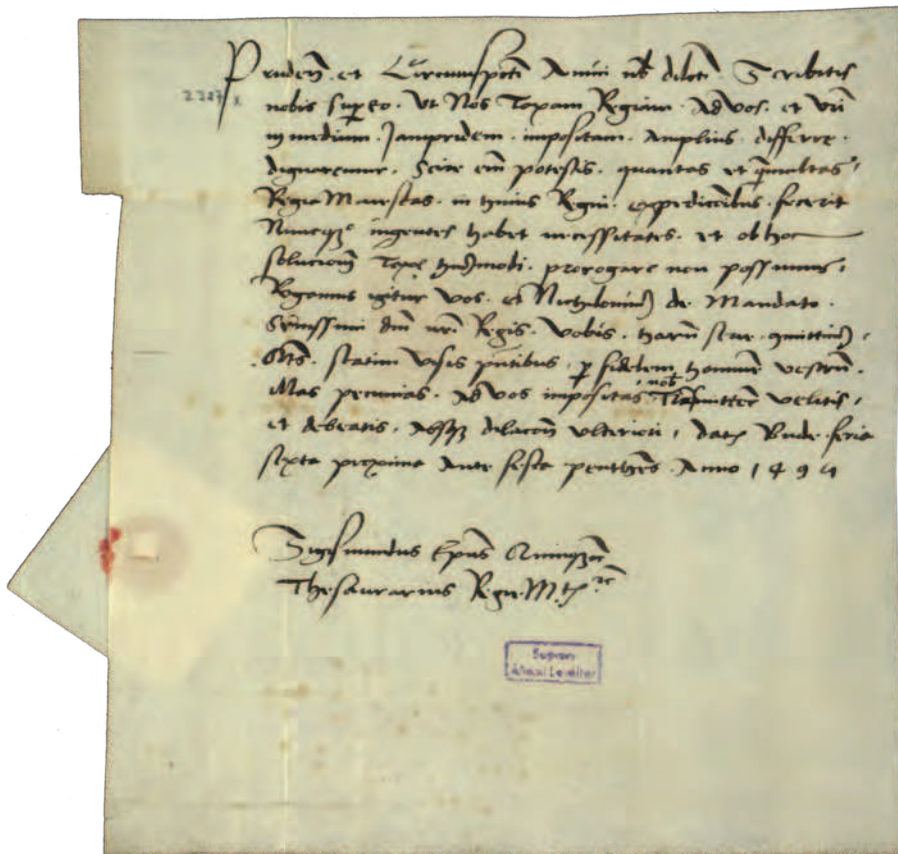 Pruden̄. et Circumspecti Amici nob̄ dilecti Scribitis
2227
nobis super eo. Ut Nos Taxam Regiam. Ad vos. et vr̄i
in medium. Jampridem. impositam. Amplius. differre.
dignaremur. Scire em̄ potestis. quantas et q̄multas
Regia Maiestas. in huius Regni. expedicōibus. fecerit
Nuncqȝ ingentes habet necessitates. et ob hoc
solucionē Taxe hmōi. prorogare non possumus.
Rogamus igitur vos. et Nichilominus de. Mandato.
Ser̄nissimi dn̄i nr̄i. Regis. vobis. harum serie. committim̄.
statim visis pn̄tibus. ꝑ fidelem hominē vestrū.
Illas pecunias. Ad vos impositas nob̄ Trāsmittere velitis.
et debeatis. Absqȝ dilacōn̄ ulteriori. datȝ Bude. feria
sexta proxima Ante festa penthēs. Anno 1494
Sigismundus Ep̄us Quinqȝecc̄
Thesaurarius Regie. M.tis ⁊c̄
Soproni
Állami Levéltár